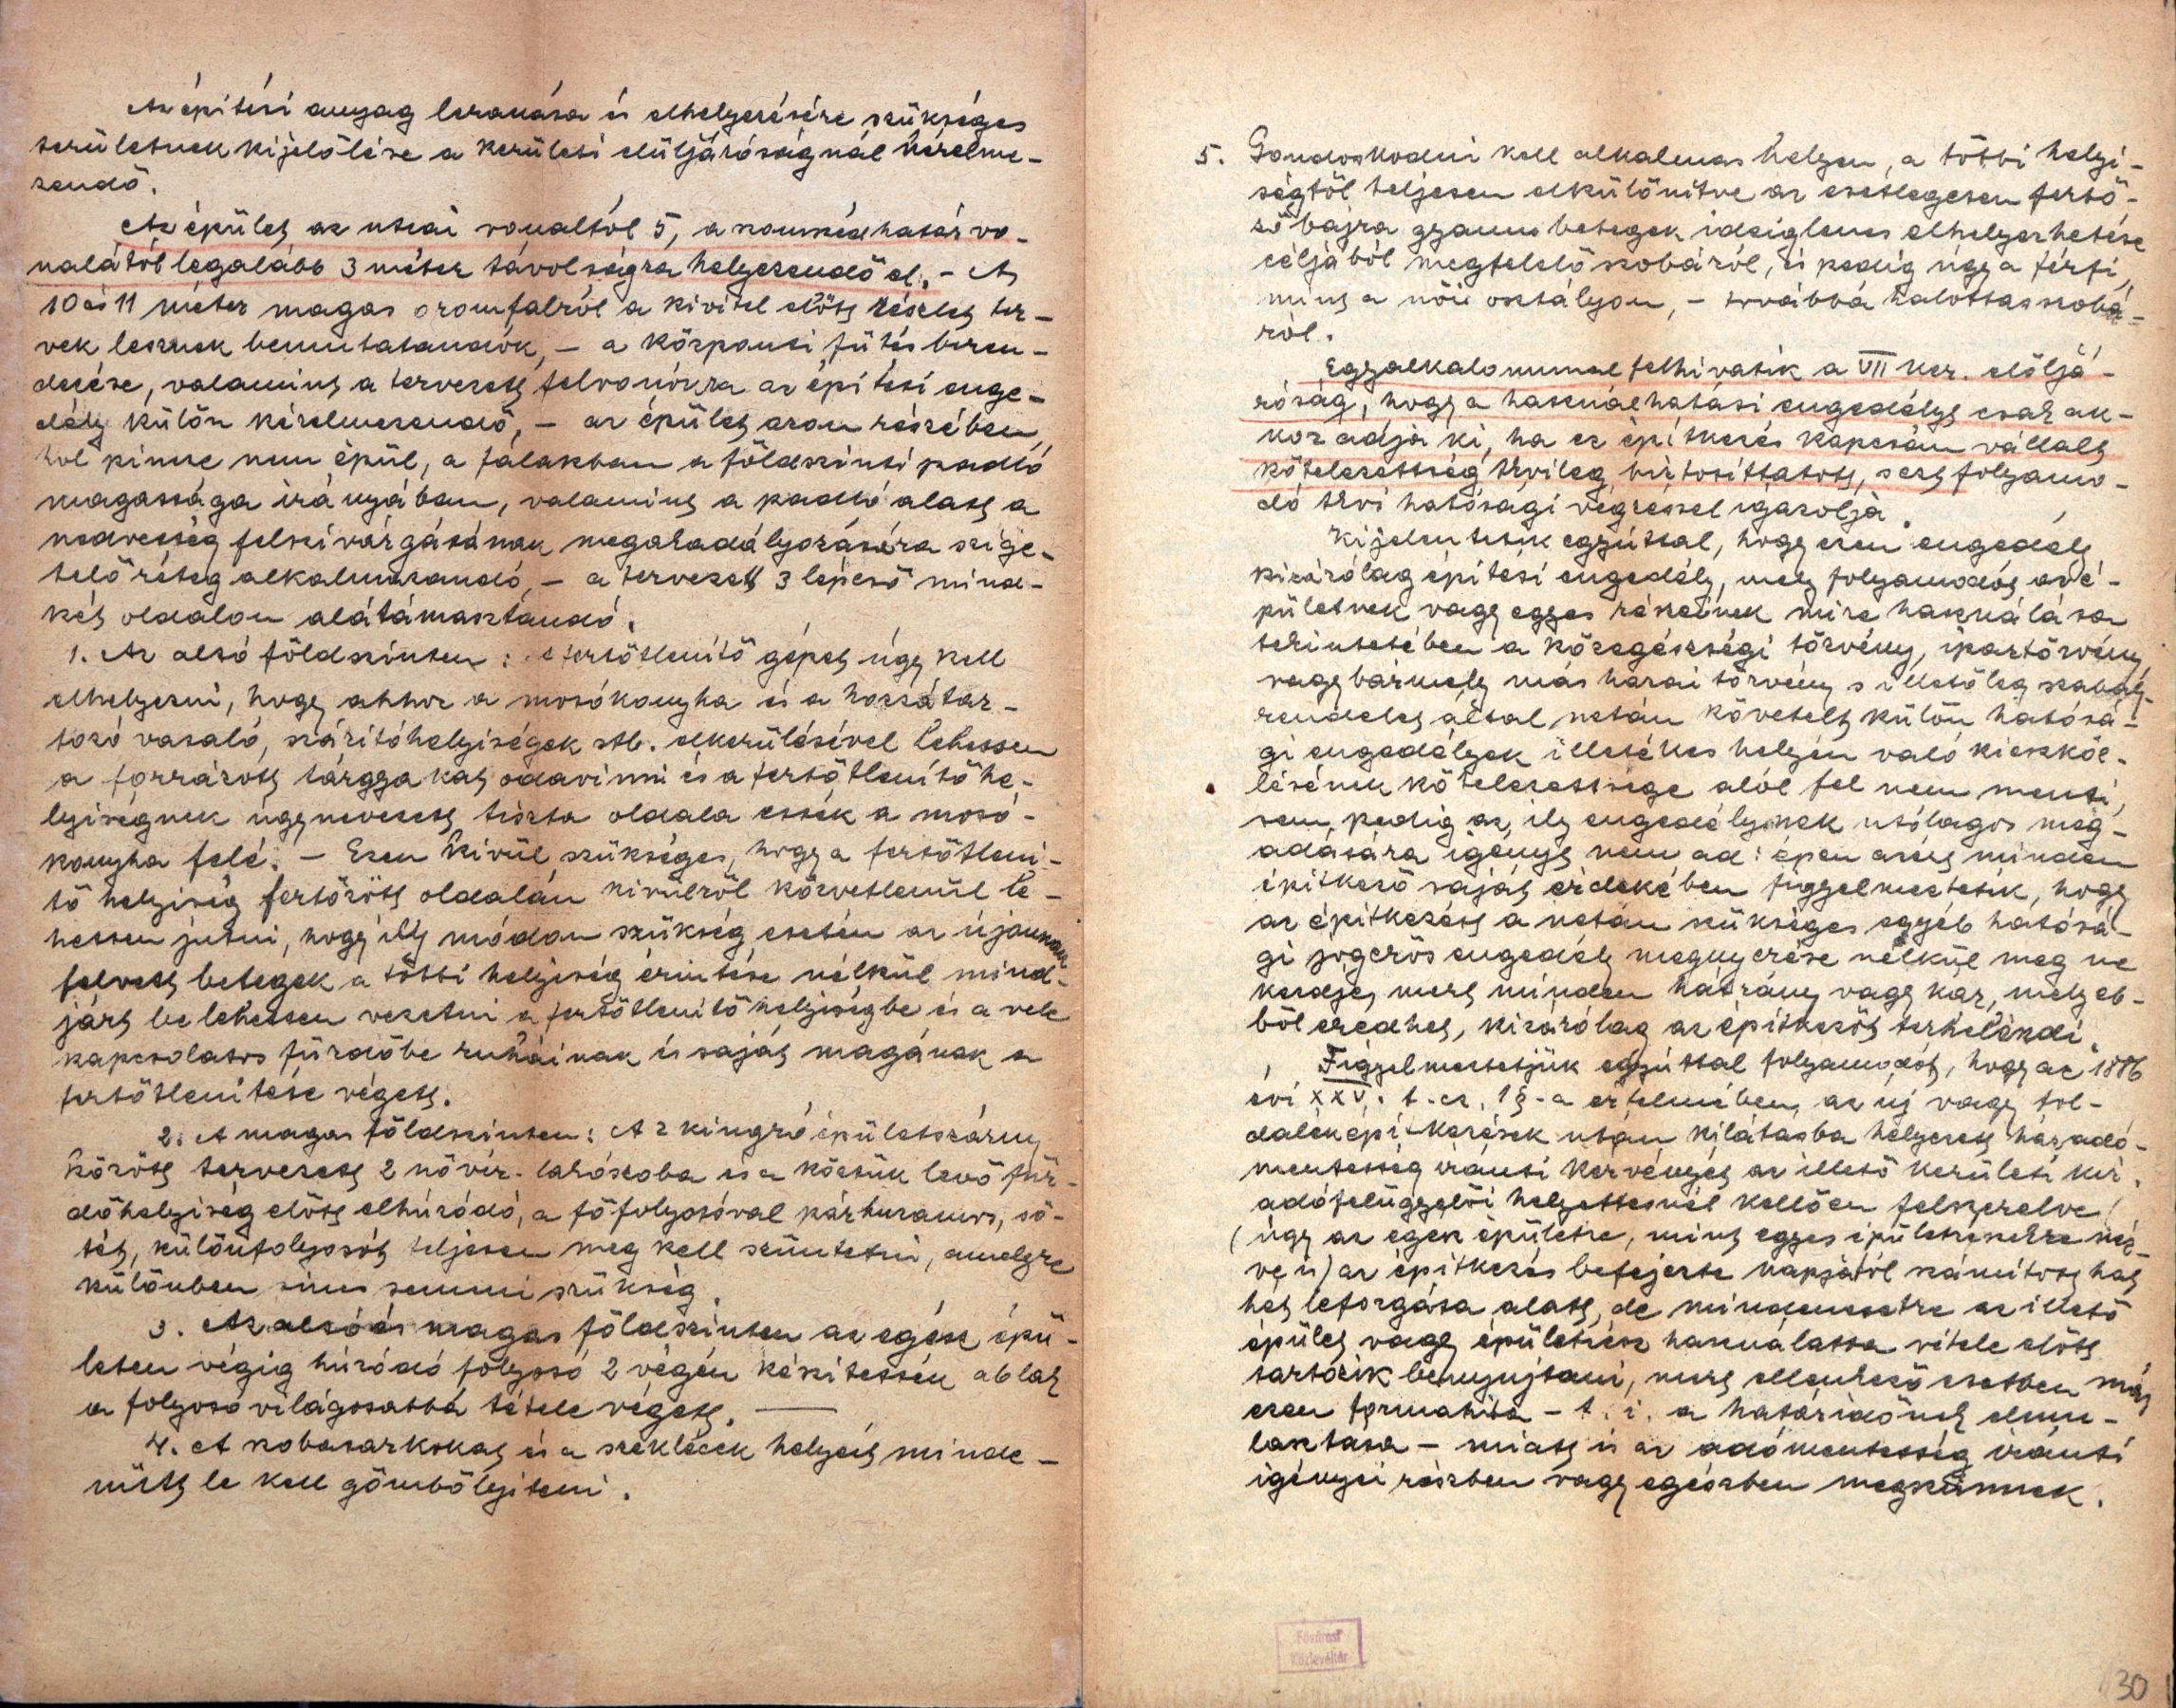 Az épitési anyag lerakása és elhelyezésére szükséges
területnek kijelölése a kerületi elüljáróságnál kérelme-
zendő.
Az épület az utcai vonaltól 5, a szomszéd határ vo-
nalától legalább 3 méter távolságra helyezendő el. - A
10 és 11 méter magas oromfalról a kivitel előtt részlet ter-
vek lesznek bemutatandók, - a központi fütés beren-
dezése, valamint a tervezett felvonókra az épitési enge-
dély külön kérelmezendő, - az épület azon részében,
hol pince nem épül, a falakban a földszinti padló
magassága irányában, valamint a padló alatt a
nedvesség felszivárgásának megakadályozására szige-
telő réteg alkalmazandó, - a tervezett 3 lépcső mind-
két oldalon alátámasztandó.
1. Az alsó földszinten: a fertőtlenitő gépet úgy kell
elhelyezni, hogy ahhoz a mosókonyha és a hozzátar-
tozó vasaló, száritóhelyiségek stb. elkerülésével lehessen
a forrázott tárgyakat odavinni és a fertőtlenitő he-
lyiségnek úgynevezett tiszta oldala essék a mosó-
konyha felé. - Ezen kivül szükséges, hogy a fertőtleni-
tő helyiség fertőzött oldalán kivülről közvetlenül le-
hessen jutni, hogy ily módon szükség esetén az újonnan
felvett betegek a többi helyiség érintése nélkül mind-
járt be lehessen vezetni a fertőtlenitő helyiségbe és a vele
kapcsolatos fürdőbe ruháinak és saját magának a
fertőtlenitése végett.
2. A magas földszinten: A 2 kiugró épületszárny
között tervezett 2 nővér-lakószoba és a köztük levő für-
dőhelyiség előtt elhúzódó, a főfolyosóval párhuzamos, sö-
tét, különfolyosót teljesen meg kell szüntetni, amelyre
különben sincs semmi szükség.
3. Az alsó és magas földszinten az egész épü-
leten végig húzódó folyosó 2 végén készitessék ablak
a folyosó világosabbá tétele végett. -
4. A szobasarkokat és a szeklécek helyeit minde-
nütt le kell gömbölyiteni.
5. Gondoskodni kell alkalmas helyen, a többi helyi-
ségtől teljesen elkülönitve az esetlegesen fertő-
ző bajra gyanus betegek ideiglenes elhelyezhetése
céljából megfelelő szobáról, és pedig úgy a férfi,
mint a női osztályon, - továbbá halottasszobá-
ról.
Egyalkalommal felhivatik a VII ker. elöljá-
róság, hogy a használhatási engedélyt csak ak-
kor adja ki, ha ez épitkezés kapcsán vállalt
kötelezettség tkvileg biztosittatott, s ezt folyamo-
dó tkvi hatósági végzéssel igazolja.
Kijelentetik egyúttal, hogy ezen engedély
kizárólag épitési engedély, mely folyamodót az é-
pületnek vagy egyes részeinek mire használása
tekintetében a közegészségi törvény, ipartörvény,
vagy bármely más hazai törvény s illetőleg szabály-
rendelet által netán követelt külön hatósá-
gi engedélyek illetékes helyén való kieszköz-
lésének kötelezettsége alól fel nem menti,
sem pedig az ily engedélyeknek utólagos meg-
adására igényt nem ad: épen azért minden
épitkező saját érdekében figyelmeztetik, hogy
az épitkezést a netán szükséges egyéb hatósá-
gi jogerős engedély megnyerése nélkül meg ne
kezdje, mert minden hátrány vagy kár, mely eb-
ből eredhet, kizárólag az épitkezőt terhelendi.
Figyelmeztetjük egyúttal folyamodót, hogy az 1886
évi XXV. t.cz. 1§-a értelmében, az új vagy tol-
dalék épitkezések után kilátásba helyezett házadó-
mentesség iránti kérvényét az illető kerületi kir.
adófelügyelői helyettesnél kellően felszerelve
(úgy az egész épületre, mint egyes épületrészekre néz-
ve is) az épitkezés befejezte napjától számitott hat
hét leforgása alatt, de mindenesetre az illető
épület vagy épületrész használatba vétele előtt
tartozik benyujtani, mert ellenkező esetben már
ezen formahiba - t. i. a határidőnek elmu-
lasztása - miatt is az adómentesség iránti
igényei részben vagy egészben megszünnek.
Fővárosi
Közlevéltár
30